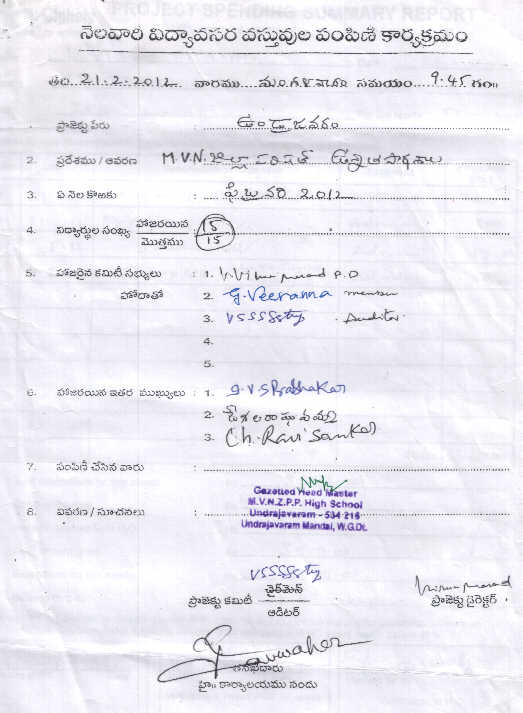 నెలవారి విద్యావసర వస్తువుల పంపిణీ కార్యక్రమం
తేది 21.2.2012 వారము మంగళవారం సమయం 9.45 గం॥
ప్రాజెక్టు పేరు : ఉండ్రాజవరం
2. ప్రదేశము / ఆవరణ M.V.N. జిల్లా పరిషత్ ఉన్నత పాఠశాల
3. ఏ నెల కొఱకు : ఫిబ్రవరి 2012
4. విద్యార్థుల సంఖ్య హాజరయిన / మొత్తము : 15 / 15
5. హాజరైన కమిటీ సభ్యులు : 1. P.D
హోదాతో 2. G. Veeranna member
3. VSSSSsty Auditor
4.
5.
6. హాజరయిన ఇతర ముఖ్యులు : 1. G.V.S Prabhakar
2.
3. Ch. Ravi Sankar
7. పంపిణీ చేసిన వారు :
Gazetted Head Master
M.V.N.Z.P.P. High School
8. వివరణ / సూచనలు : Undrajavaram - 534 216
Undrajavaram Mandal, W.G.Dt.
VSSSSsty
ప్రాజెక్టు కమిటీ చైర్‌మెన్ / ఆడిటర్
ప్రాజెక్టు డైరెక్టర్
తనిఖీదారు
హై॥ కార్యాలయము నందు